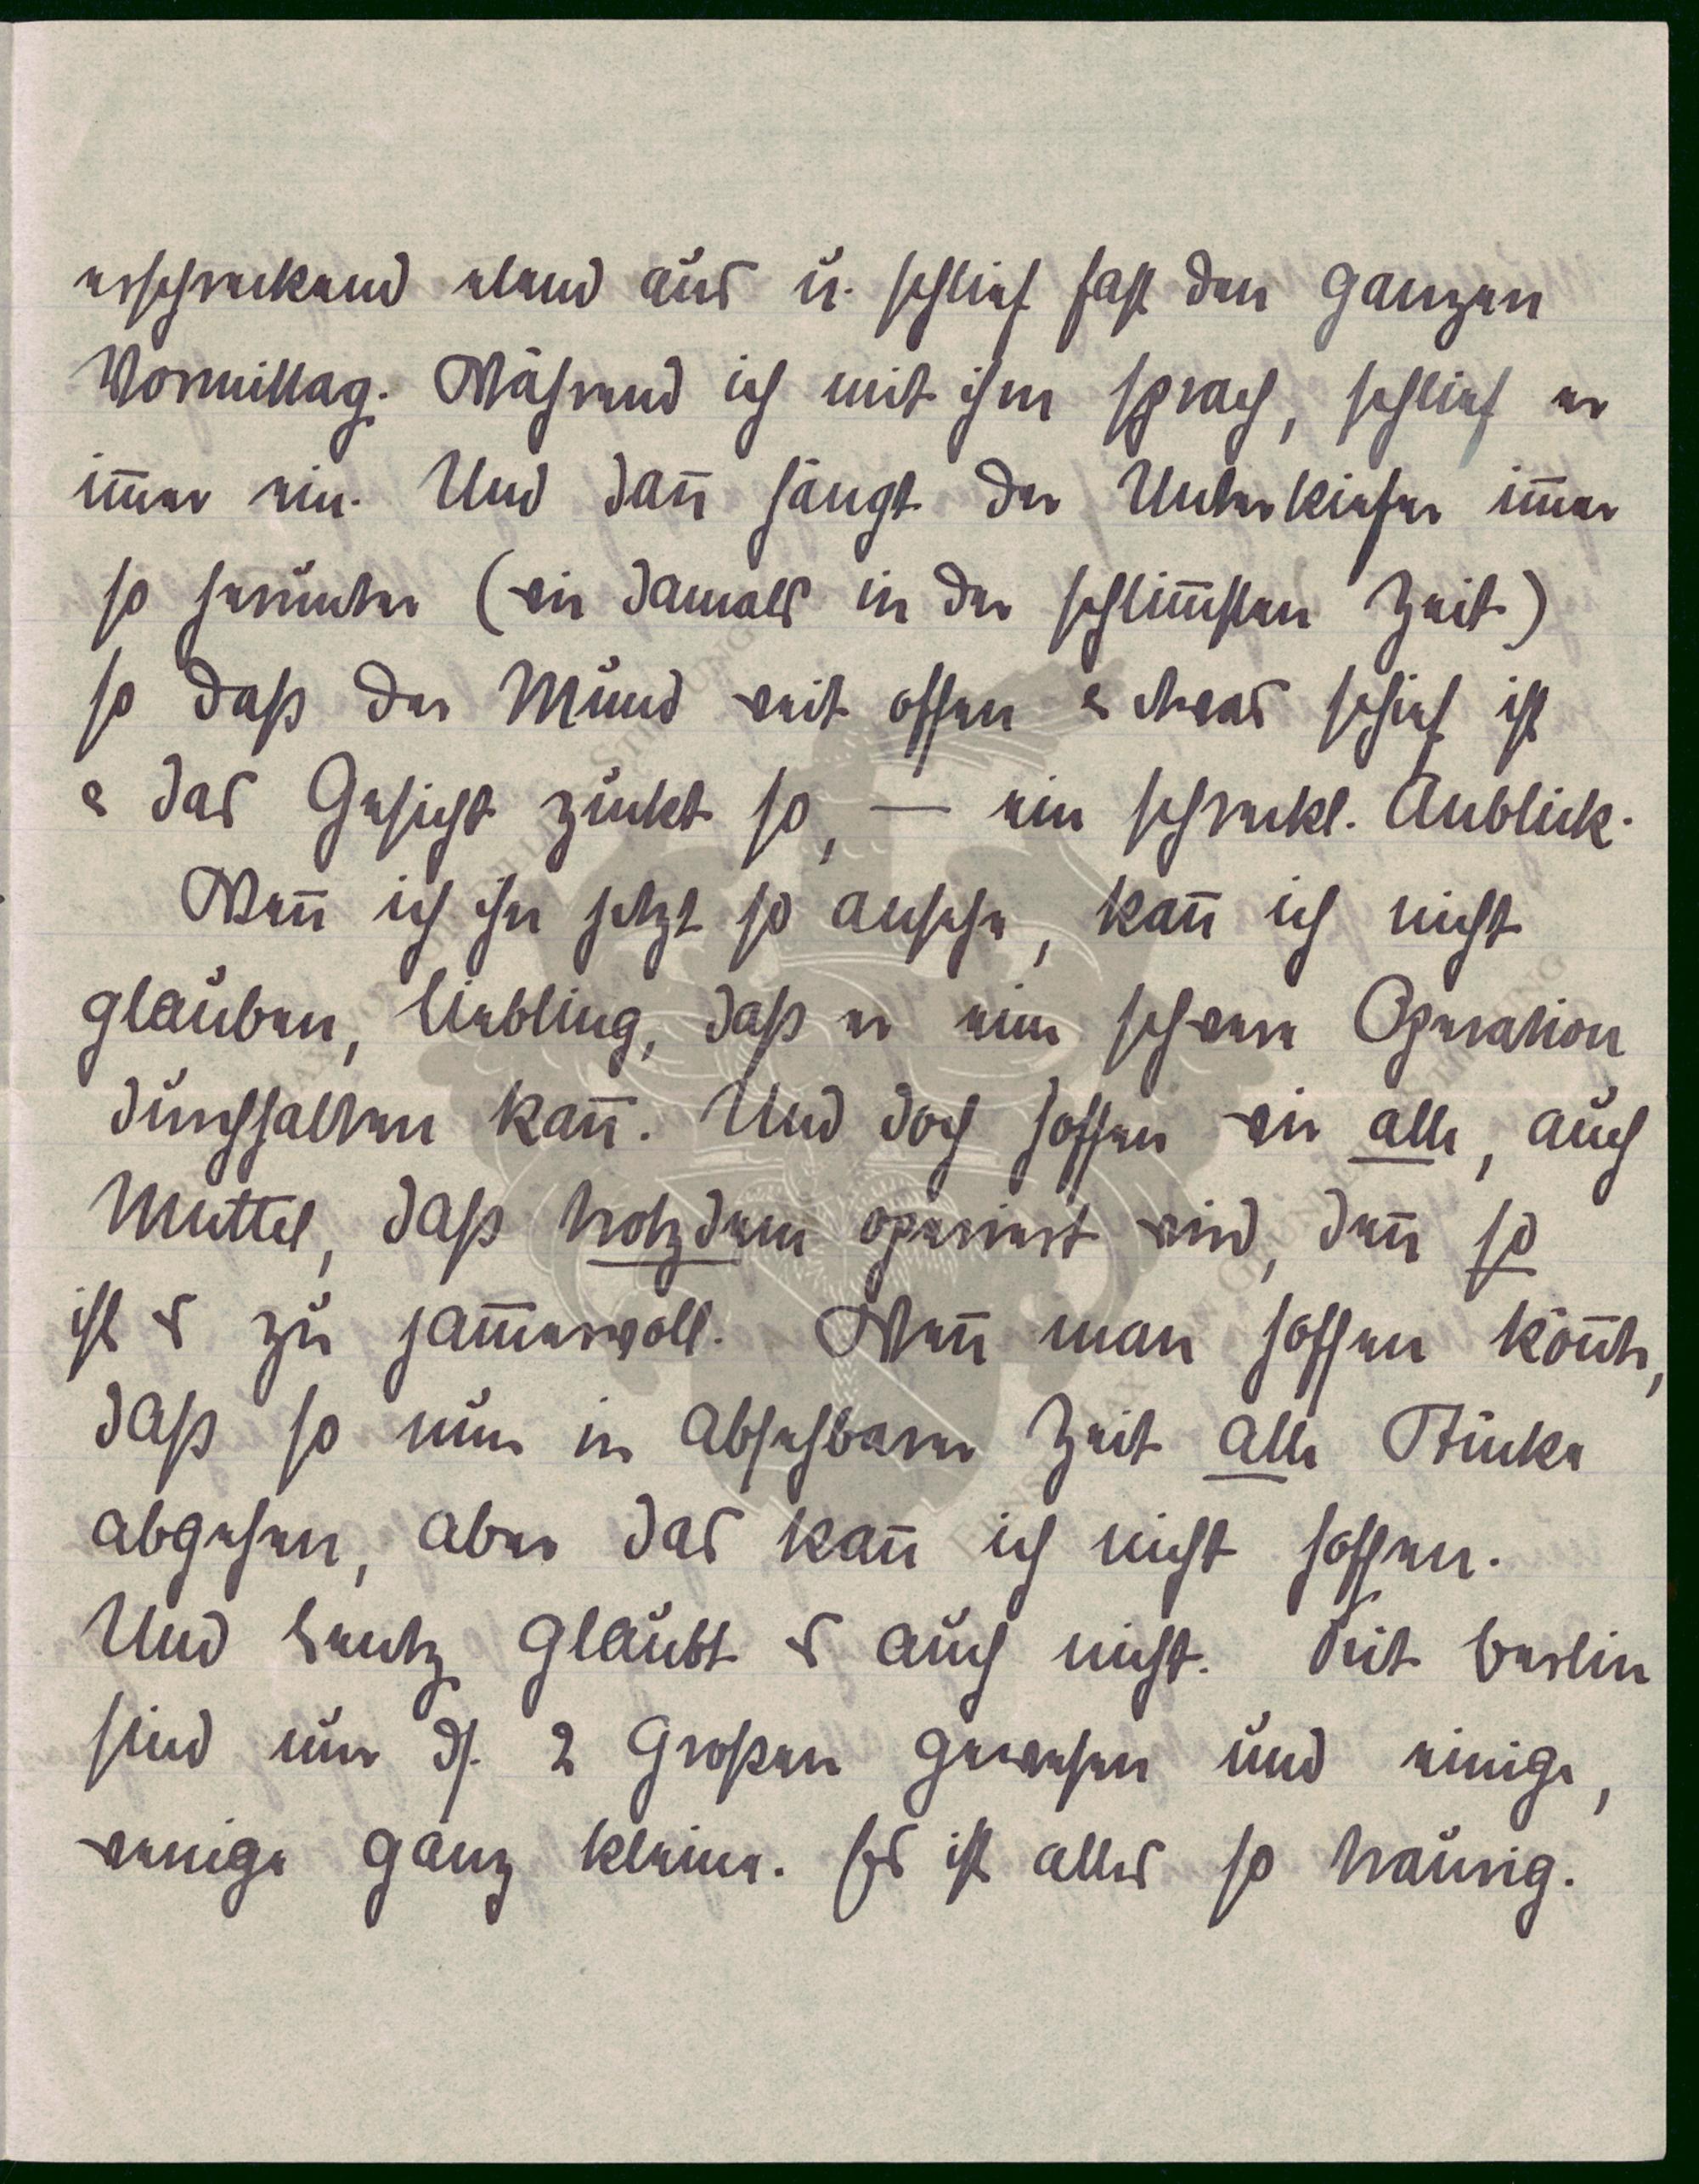 erschreckend elend aus u. schlief fast den ganzen
Vormittag. Während ich mit ihm sprach, schlief er
im̅er ein. Und dan̅ hängt der Unterkiefer im̅er
so herunter (wie damals in der schlim̅sten Zeit)
so daß der Mund weit offen & etwas schief ist
& das Gesicht zuckt so, — ein schreckl. Anblick.
Wen̅ ich ihn jetzt so ansehe, kan̅ ich nicht
glauben, Liebling, daß er eine schwere Operation
durchhalten kan̅. Und doch hoffen wir alle, auch
Muttel, daß trotzdem operiert wird, den̅ so
ist es zu jam̅ervoll. Wen̅ man hoffen kön̅te,
daß so nun in absehbarer Zeit alle Stücke
abgehen, aber das kan̅ ich nicht hoffen.
Und Lentz glaubt es auch nicht. Seit Berlin
sind nur d. 2 Großen gewesen und einige,
wenige ganz kleine. Es ist alles so traurig.